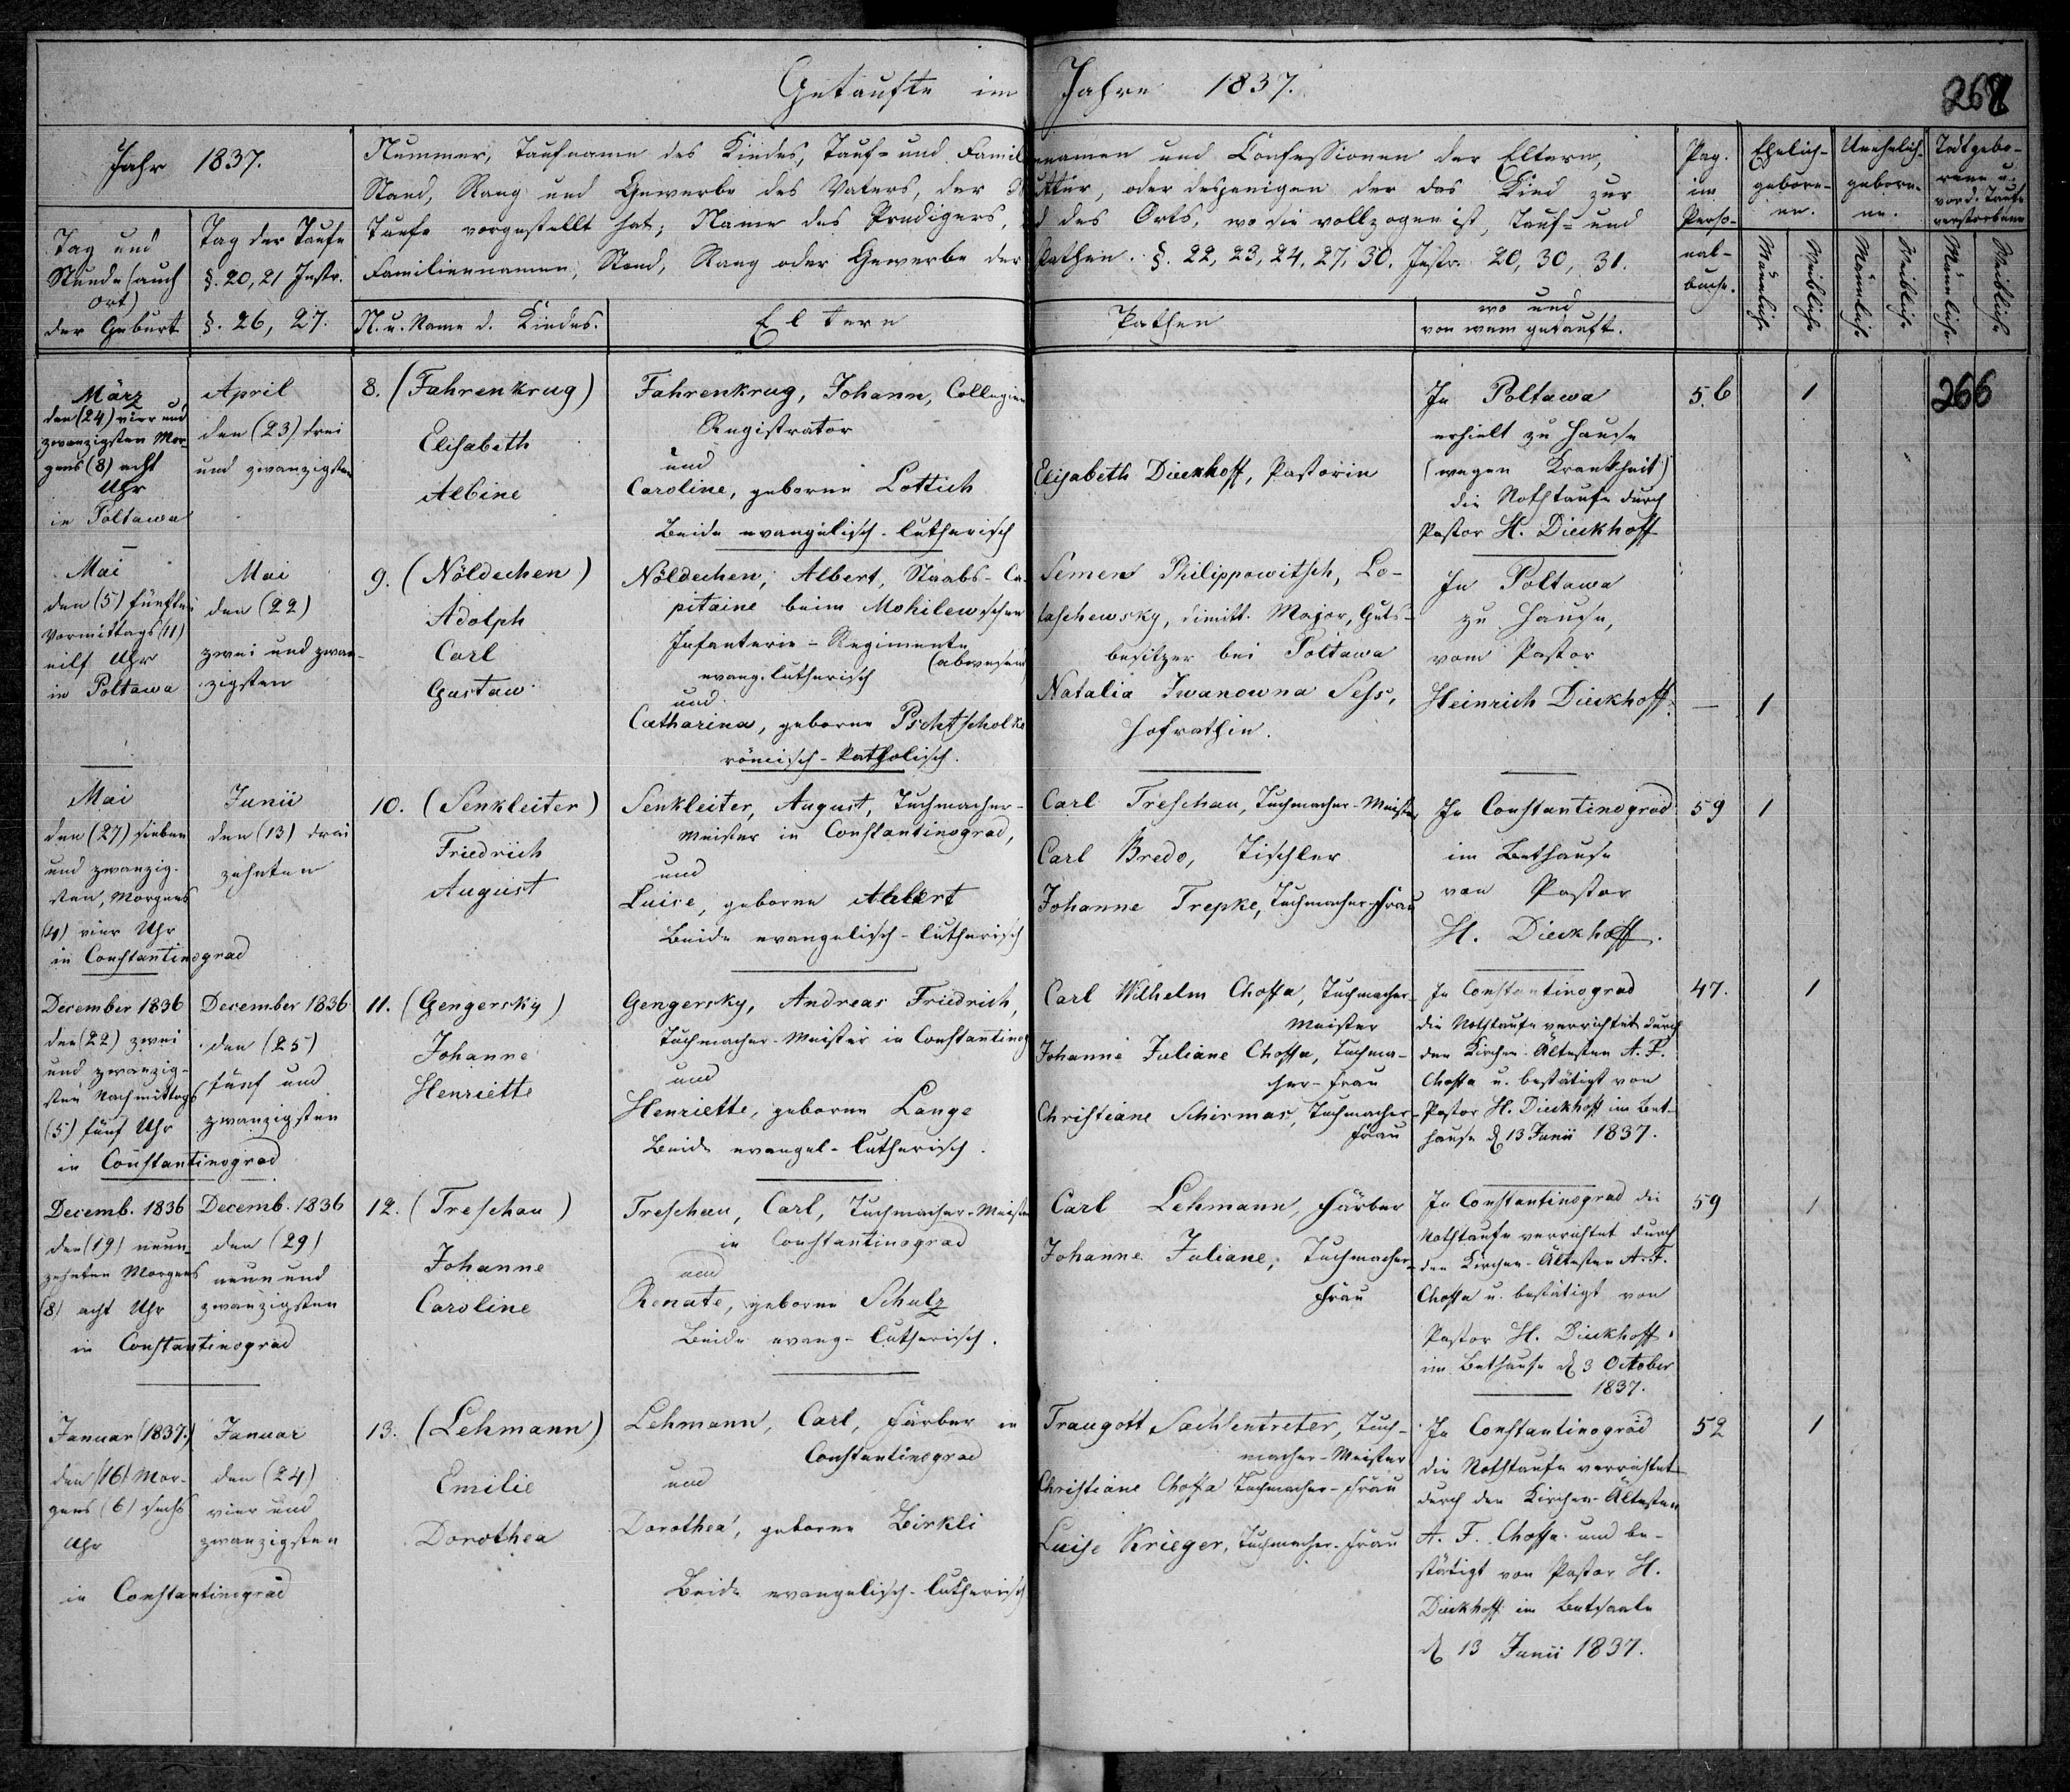 Getaufte im Jahre 1837.
267
Jahr 1837.
Tag und
Stunde (auch
Ort)
der Geburt
Tag der Taufe
§. 20, 21 Instr.
§. 26, 27.
Nummer, Taufname des Kindes, Tauf- und Familiennamen und Confessionen der Eltern,
Stand, Rang und Gewerbe des Vaters, der Mutter, oder desjenigen der das Kind zur
Taufe vorgestellt hat; Name des Predigers, und des Orts, wo sie vollzogen ist, Tauf- und
Familiennamen, Stand, Rang oder Gewerbe der Pathen. §. 22, 23, 24, 27, 30. Instr. 20, 30, 31.
N. u. Name d. Kindes.
Eltern
Pathen
wo und
von wem getauft.
Pag.
im
Perso-
nal-
buche.
Ehelich-
gebore-
ne.
Unehelich-
gebore-
ne.
Todtgebo-
rene u.
vor d. Taufe
verstorbene
Männlich
Weiblich
Männlich
Weiblich
Männlich
Weiblich
März
den (24) vier und
zwanzigsten Mor-
gens (8) acht
Uhr
in Poltawa
April
den (23) drei
und zwanzigsten
8. (Fahrenkrug)
Elisabeth
Albine
Fahrenkrug, Johann, Collegien
Registrator
und
Caroline, geborne Lottich
Beide evangelisch-lutherisch
Elisabeth Dieckhoff, Pastorin
In Poltawa
erhielt zu Hause
(wegen Krankheit)
die Nothtaufe durch
Pastor H. Dieckhoff
56
1
266
Mai
den (5) fünften
Vormittags (11)
eilf Uhr
in Poltawa
Mai
den (22)
zwei und zwan-
zigsten
9. (Nöldechen)
Adolph
Carl
Gustaw
Nöldechen, Albert, Staabs-Ca-
pitaine beim Mohilewschen
Infanterie-Regimente
(abwesend)
evang. lutherisch
und
Catharina, geborne
römisch-katholisch.
Semen Philippowitsch, Lo-
taschewsky, dimitt. Major, Guts-
besitzer bei Poltawa
Natalia Iwanowna Sess,
Hofrathin.
In Poltawa
zu Hause,
vom Pastor
Heinrich Dieckhoff.
—
1
Mai
den (27) sieben
und zwanzig-
sten, Morgens
(4) vier Uhr
in Constantinograd
Junii
den (13) drei
zehnten
10. (Senkleiter)
Friedrich
August
Senkleiter, August, Tuchmacher-
Meister in Constantinograd,
und
Luise, geborne Ahlert
Beide evangelisch-lutherisch
Carl Treschau, Tuchmacher-Meister
Carl Bredo, Tischler
Johanne Trepke, Tuchmacher-Frau
In Constantinograd
im Bethause
von Pastor
H. Dieckhoff.
59
1
December 1836
den (22) zwei
und zwanzig-
sten Nachmittags
(5) fünf Uhr
in Constantinograd
December 1836
den (25)
fünf und
zwanzigsten
11. (Gengersky)
Johanne
Henriette
Gengersky, Andreas Friedrich,
Tuchmacher-Meister in Constantinog
und
Henriette, geborne Lange
Beide evangel-lutherisch.
Carl Wilhelm Chossa, Tuchmacher-
Meister
Johanne Juliane Chossa, Tuchma-
cher-Frau
Christiane Schirmar, Tuchmacher-
Frau
In Constantinograd
die Nothtaufe verrichtet durch
den Kirchen-Ältesten A. F.
Chossa u. bestätigt von
Pastor H. Dieckhoff im Bet-
hause d 13 Junii 1837.
47.
1
Decemb. 1836
den (19) neun-
zehnten Morgens
(8) acht Uhr
in Constantinograd
Decemb. 1836
den (29)
neun und
zwanzigsten
12. (Treschau)
Johanne
Caroline
Treschau, Carl, Tuchmacher-Meister
in Constantinograd
und
Renate, geborne Schulz
Beide evang-lutherisch.
Carl Lehmann, Färber
Johanne Juliane, Tuchmacher-
Frau
In Constantinograd die
Nothtaufe verrichtet durch
den Kirchen-Ältesten A. F.
Chossa u. bestätigt von
Pastor H. Dieckhoff
im Bethause d 3 October
1837.
59
1
Januar (1837.)
den (16) Mor-
gens (6) sechs
Uhr
in Constantinograd
Januar
den (24)
vier und
zwanzigsten
13. (Lehmann)
Emilie
Dorothea
Lehmann, Carl, Färber in
Constantinograd
und
Dorothea, geborne Birkli
Beide evangelisch-lutherisch
Traugott Sachlentreter, Tuch-
macher-Meister
Christiane Chossa Tuchmacher-Frau
Luise Krieger, Tuchmacher-Frau
In Constantinograd
die Nothtaufe verrichtet
durch den Kirchen-Ältesten
A. F. Chossa und be-
stätigt von Pastor H.
Dieckhoff im Betsaale
d 13 Junii 1837.
52
1